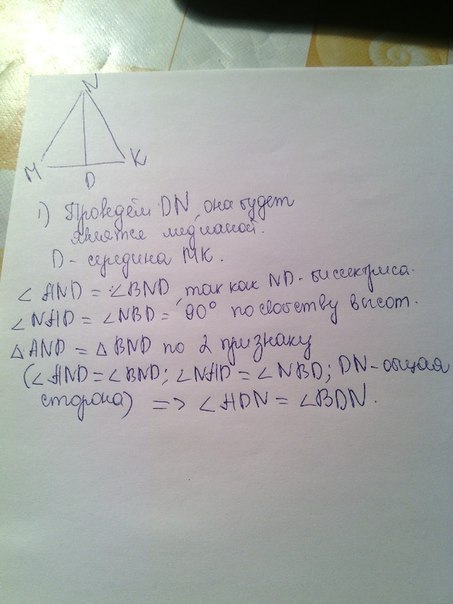 N
M K
D
1) Проведём DN, она будет
является медианой.
D - середина MK.
∠ AND = ∠BND, так как ND - биссектриса.
∠ NAD = ∠NBD = 90° по свойству высот.
△ AND = △ BND по 2 признаку
(∠ AND = ∠BND; ∠ NAD = ∠NBD; DN - общая
сторона) => ∠ ADN = ∠BDN.